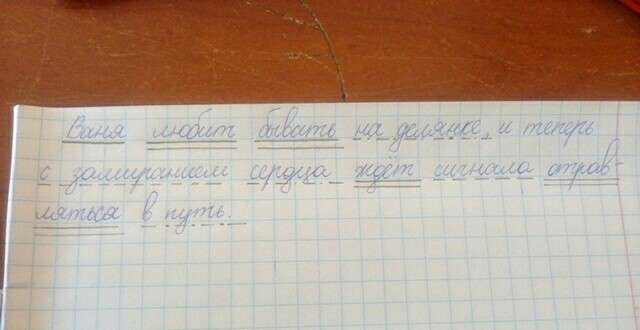 Ваня любит бывать на делянке, и теперь
с замиранием сердца ждёт сигнала отрав-
ляться в путь.